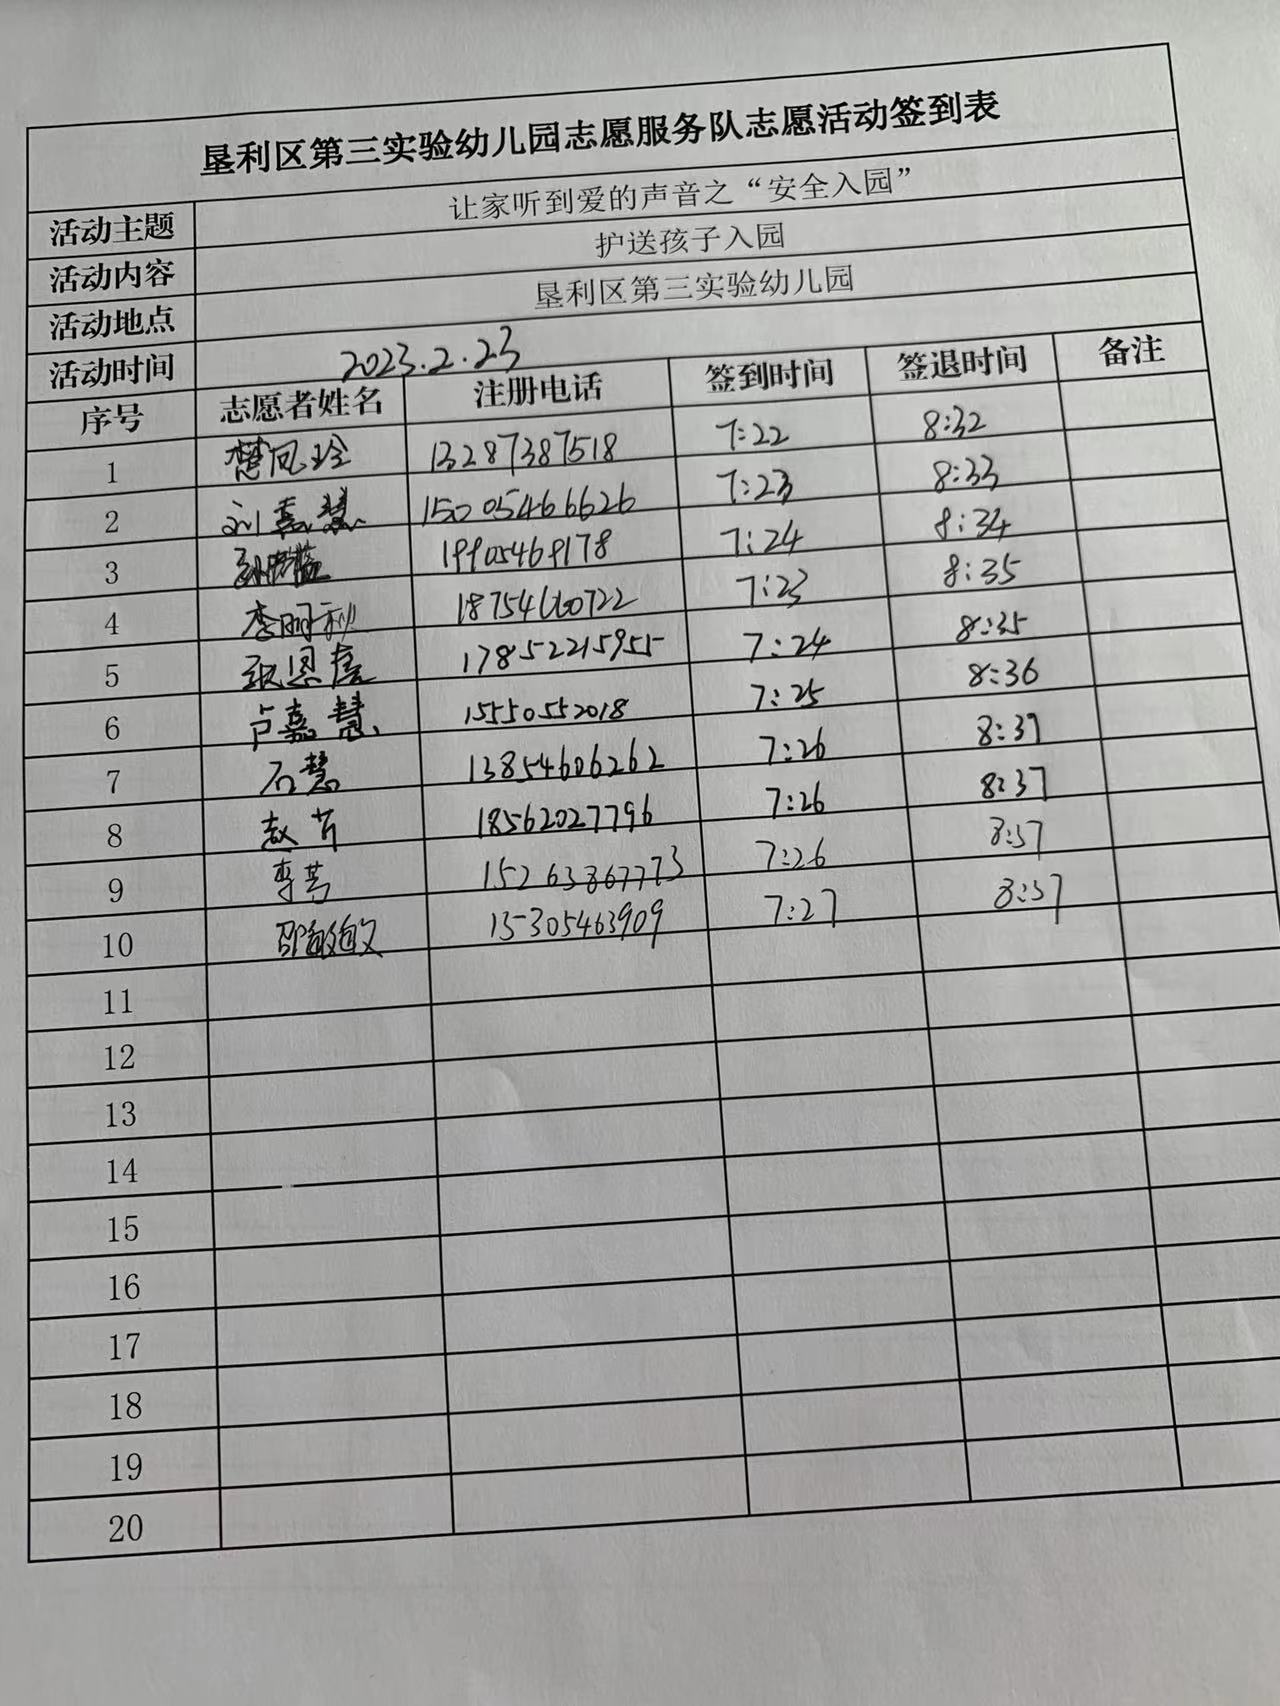 垦利区第三实验幼儿园志愿服务队志愿活动签到表
活动主题 让家听到爱的声音之“安全入园”
活动内容 护送孩子入园
活动地点 垦利区第三实验幼儿园
活动时间 2023.2.23
序号 志愿者姓名 注册电话 签到时间 签退时间 备注
1 楚凤玲 13287387518 7:22 8:32
2 刘嘉慧 15005466626 7:23 8:33
3 7:24 8:34
4 李丽秋 7:23 8:35
5 17852215955 7:24 8:35
6 卢嘉慧 15550552018 7:25 8:36
7 石慧 13854606262 7:26 8:37
8 赵芹 18562027796 7:26 8:37
9 李芳 15263867773 7:26 8:37
10 邵敏敏 15305463909 7:27 8:37
11
12
13
14
15
16
17
18
19
20